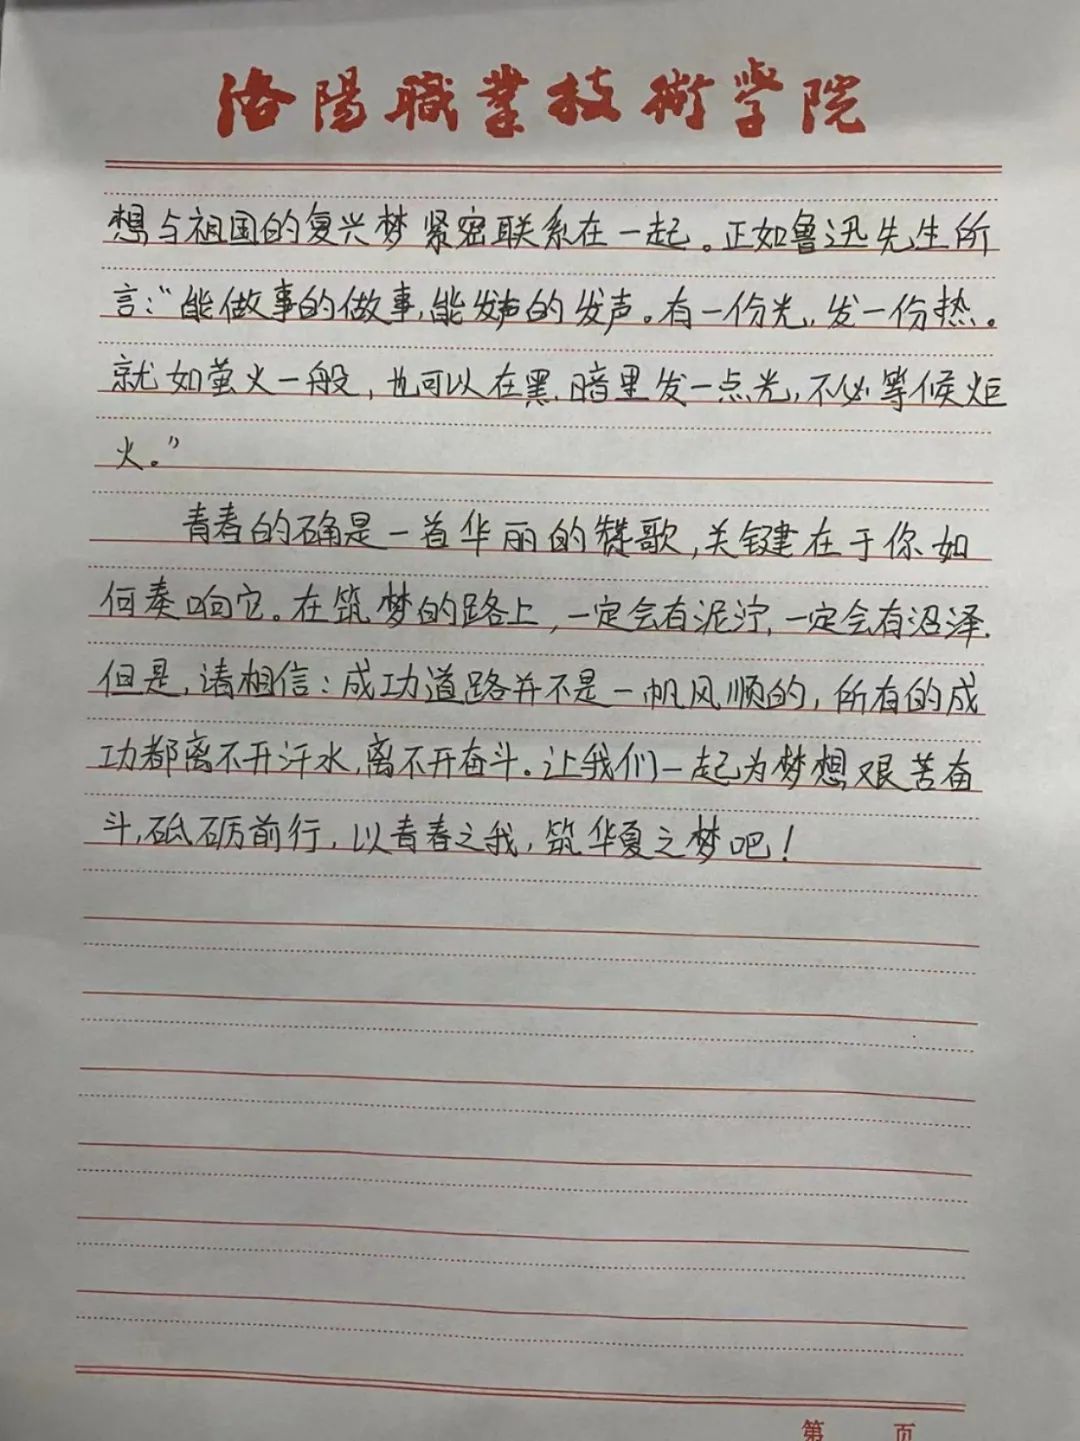 洛陽職業技術學院
想与祖国的复兴梦紧密联系在一起。正如鲁迅先生所
言:“能做事的做事,能发声的发声。有一份光,发一份热。
就如萤火一般,也可以在黑暗里发一点光,不必等候炬
火。”
青春的确是一首华丽的赞歌,关键在于你如
何奏响它。在筑梦的路上,一定会有泥泞,一定会有沼泽.
但是,请相信:成功道路并不是一帆风顺的,所有的成
功都离不开汗水,离不开奋斗。让我们一起为梦想艰苦奋
斗,砥砺前行,以青春之我,筑华夏之梦吧!
第 页